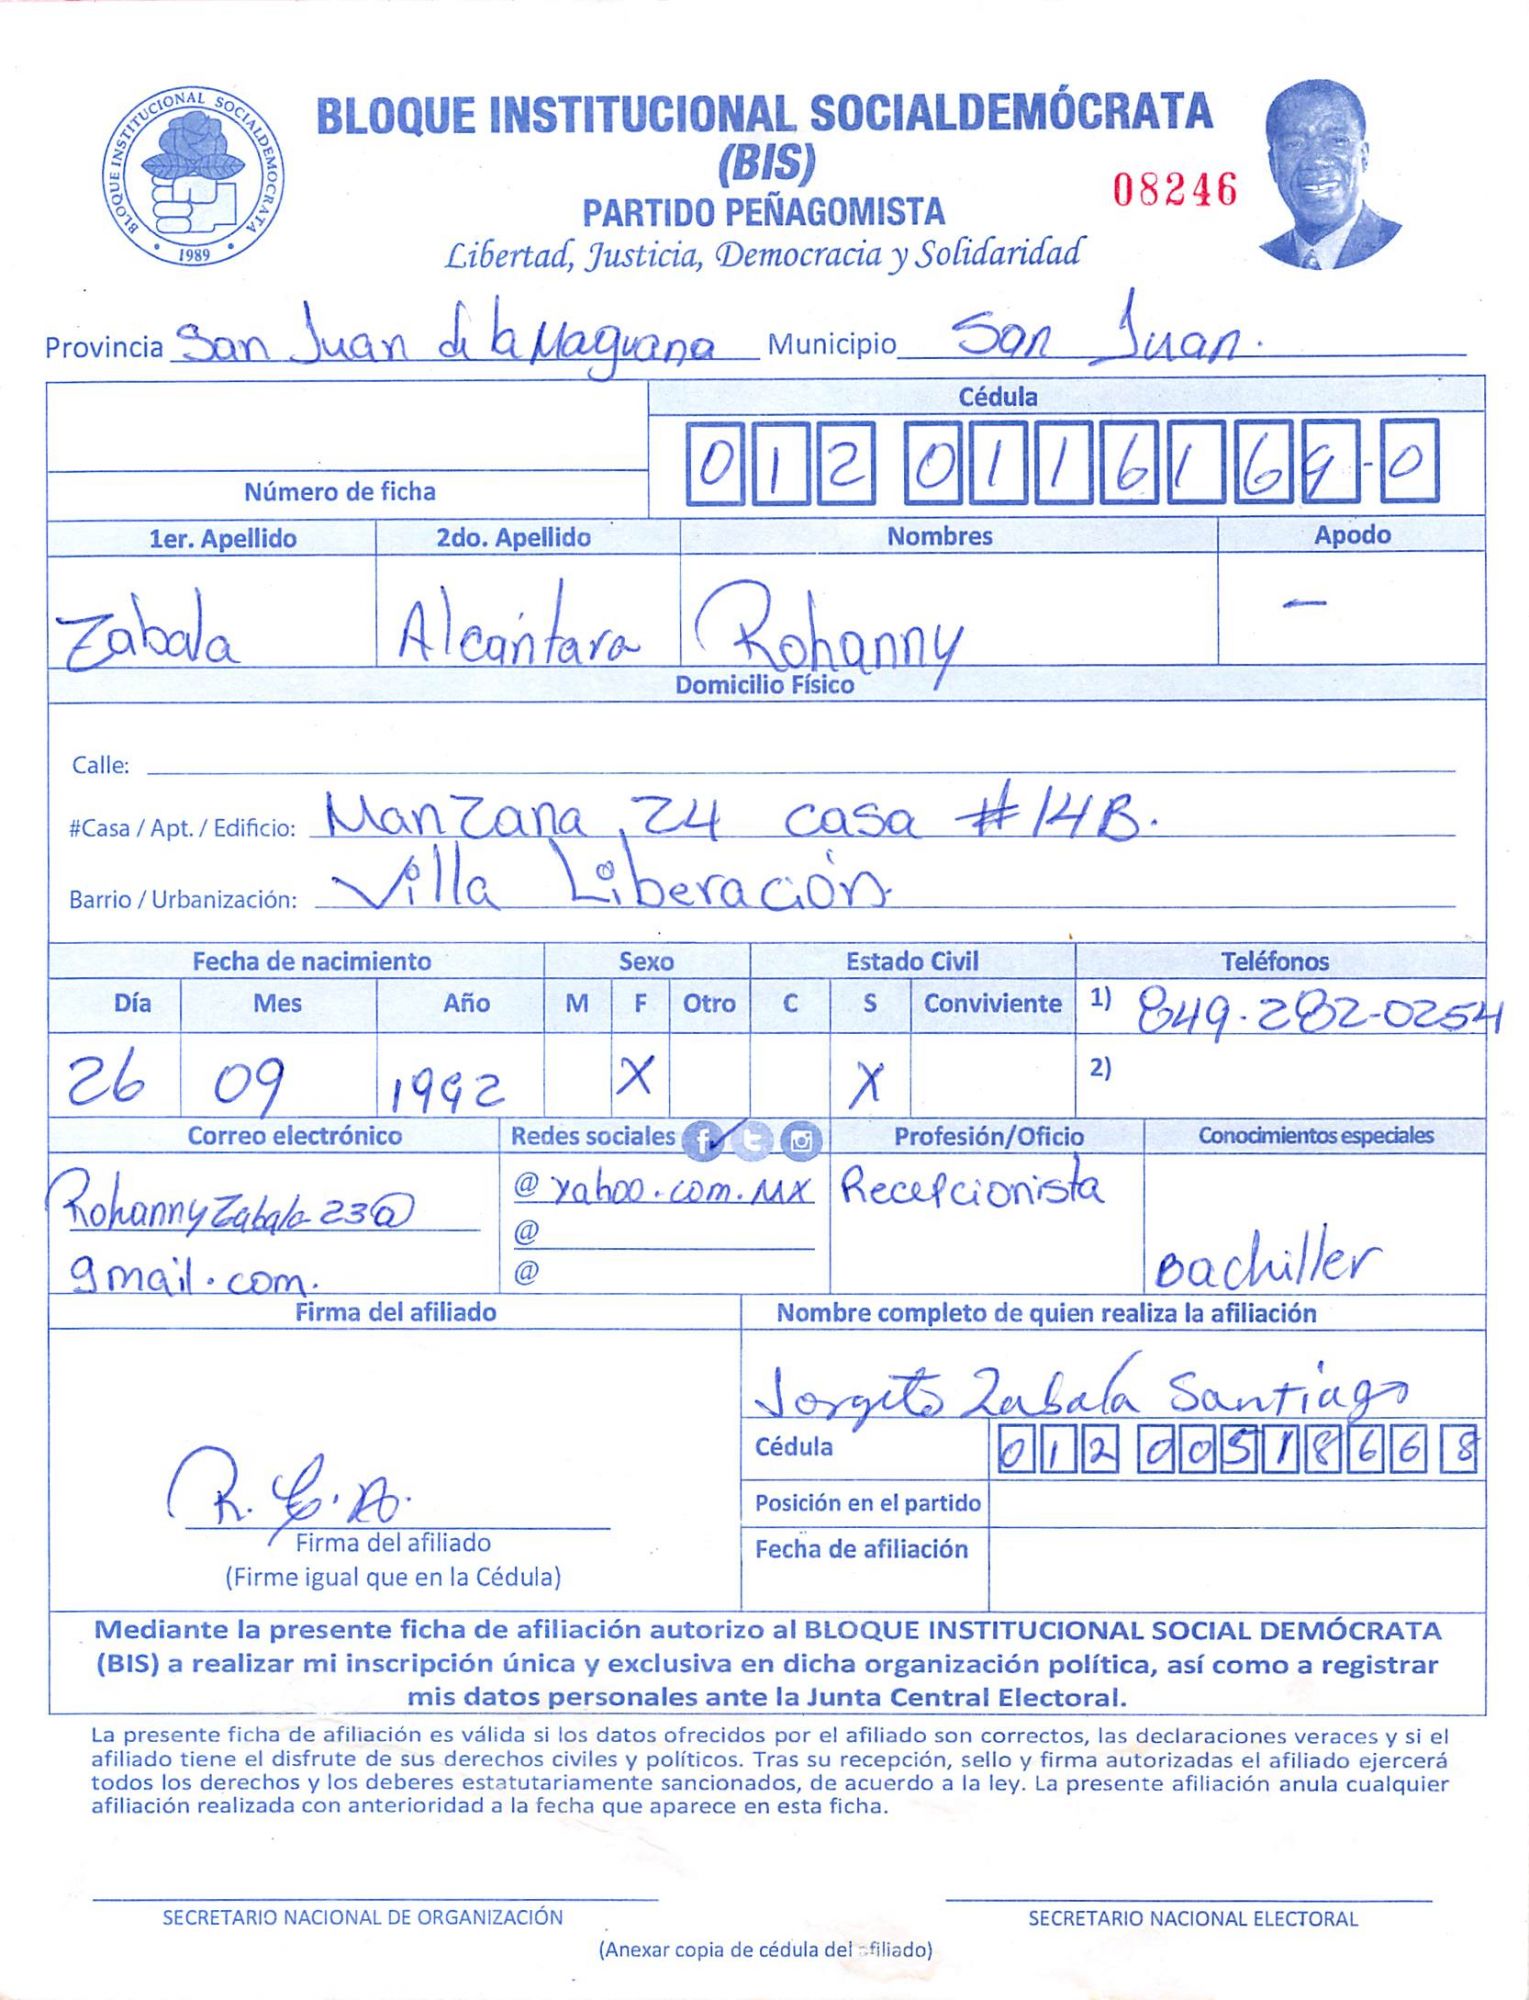 BLOQUE INSTITUCIONAL SOCIALDEMOCRATA
1989
BLOQUE INSTITUCIONAL SOCIALDEMÓCRATA
(BIS)
PARTIDO PEÑAGOMISTA
08246
Libertad, Justicia, Democracia y Solidaridad
Provincia San Juan de la Maguana Municipio San Juan.
Cédula
0 1 2 0 1 1 6 1 6 9 - 0
Número de ficha
1er. Apellido 2do. Apellido Nombres Apodo
Zabala Alcántara Rohanny —
Domicilio Físico
Calle:
#Casa / Apt. / Edificio: Manzana, 24 casa #14B.
Barrio / Urbanización: Villa Liberación.
Fecha de nacimiento Sexo Estado Civil Teléfonos
Día Mes Año M F Otro C S Conviviente 1) 849-282-0254
26 09 1992 X X 2)
Correo electrónico Redes sociales Profesión/Oficio Conocimientos especiales
RohannyZabala23@ @ yahoo.com.MX Recepcionista
@
gmail.com. @ Bachiller
Firma del afiliado Nombre completo de quien realiza la afiliación
Jorgito Zabala Santiago
Cédula 0 1 2 0 0 5 1 8 6 6 8
R. Z. A.
Posición en el partido
Firma del afiliado Fecha de afiliación
(Firme igual que en la Cédula)
Mediante la presente ficha de afiliación autorizo al BLOQUE INSTITUCIONAL SOCIAL DEMÓCRATA
(BIS) a realizar mi inscripción única y exclusiva en dicha organización política, así como a registrar
mis datos personales ante la Junta Central Electoral.
La presente ficha de afiliación es válida si los datos ofrecidos por el afiliado son correctos, las declaraciones veraces y si el
afiliado tiene el disfrute de sus derechos civiles y políticos. Tras su recepción, sello y firma autorizadas el afiliado ejercerá
todos los derechos y los deberes estatutariamente sancionados, de acuerdo a la ley. La presente afiliación anula cualquier
afiliación realizada con anterioridad a la fecha que aparece en esta ficha.
SECRETARIO NACIONAL DE ORGANIZACIÓN SECRETARIO NACIONAL ELECTORAL
(Anexar copia de cédula del afiliado)